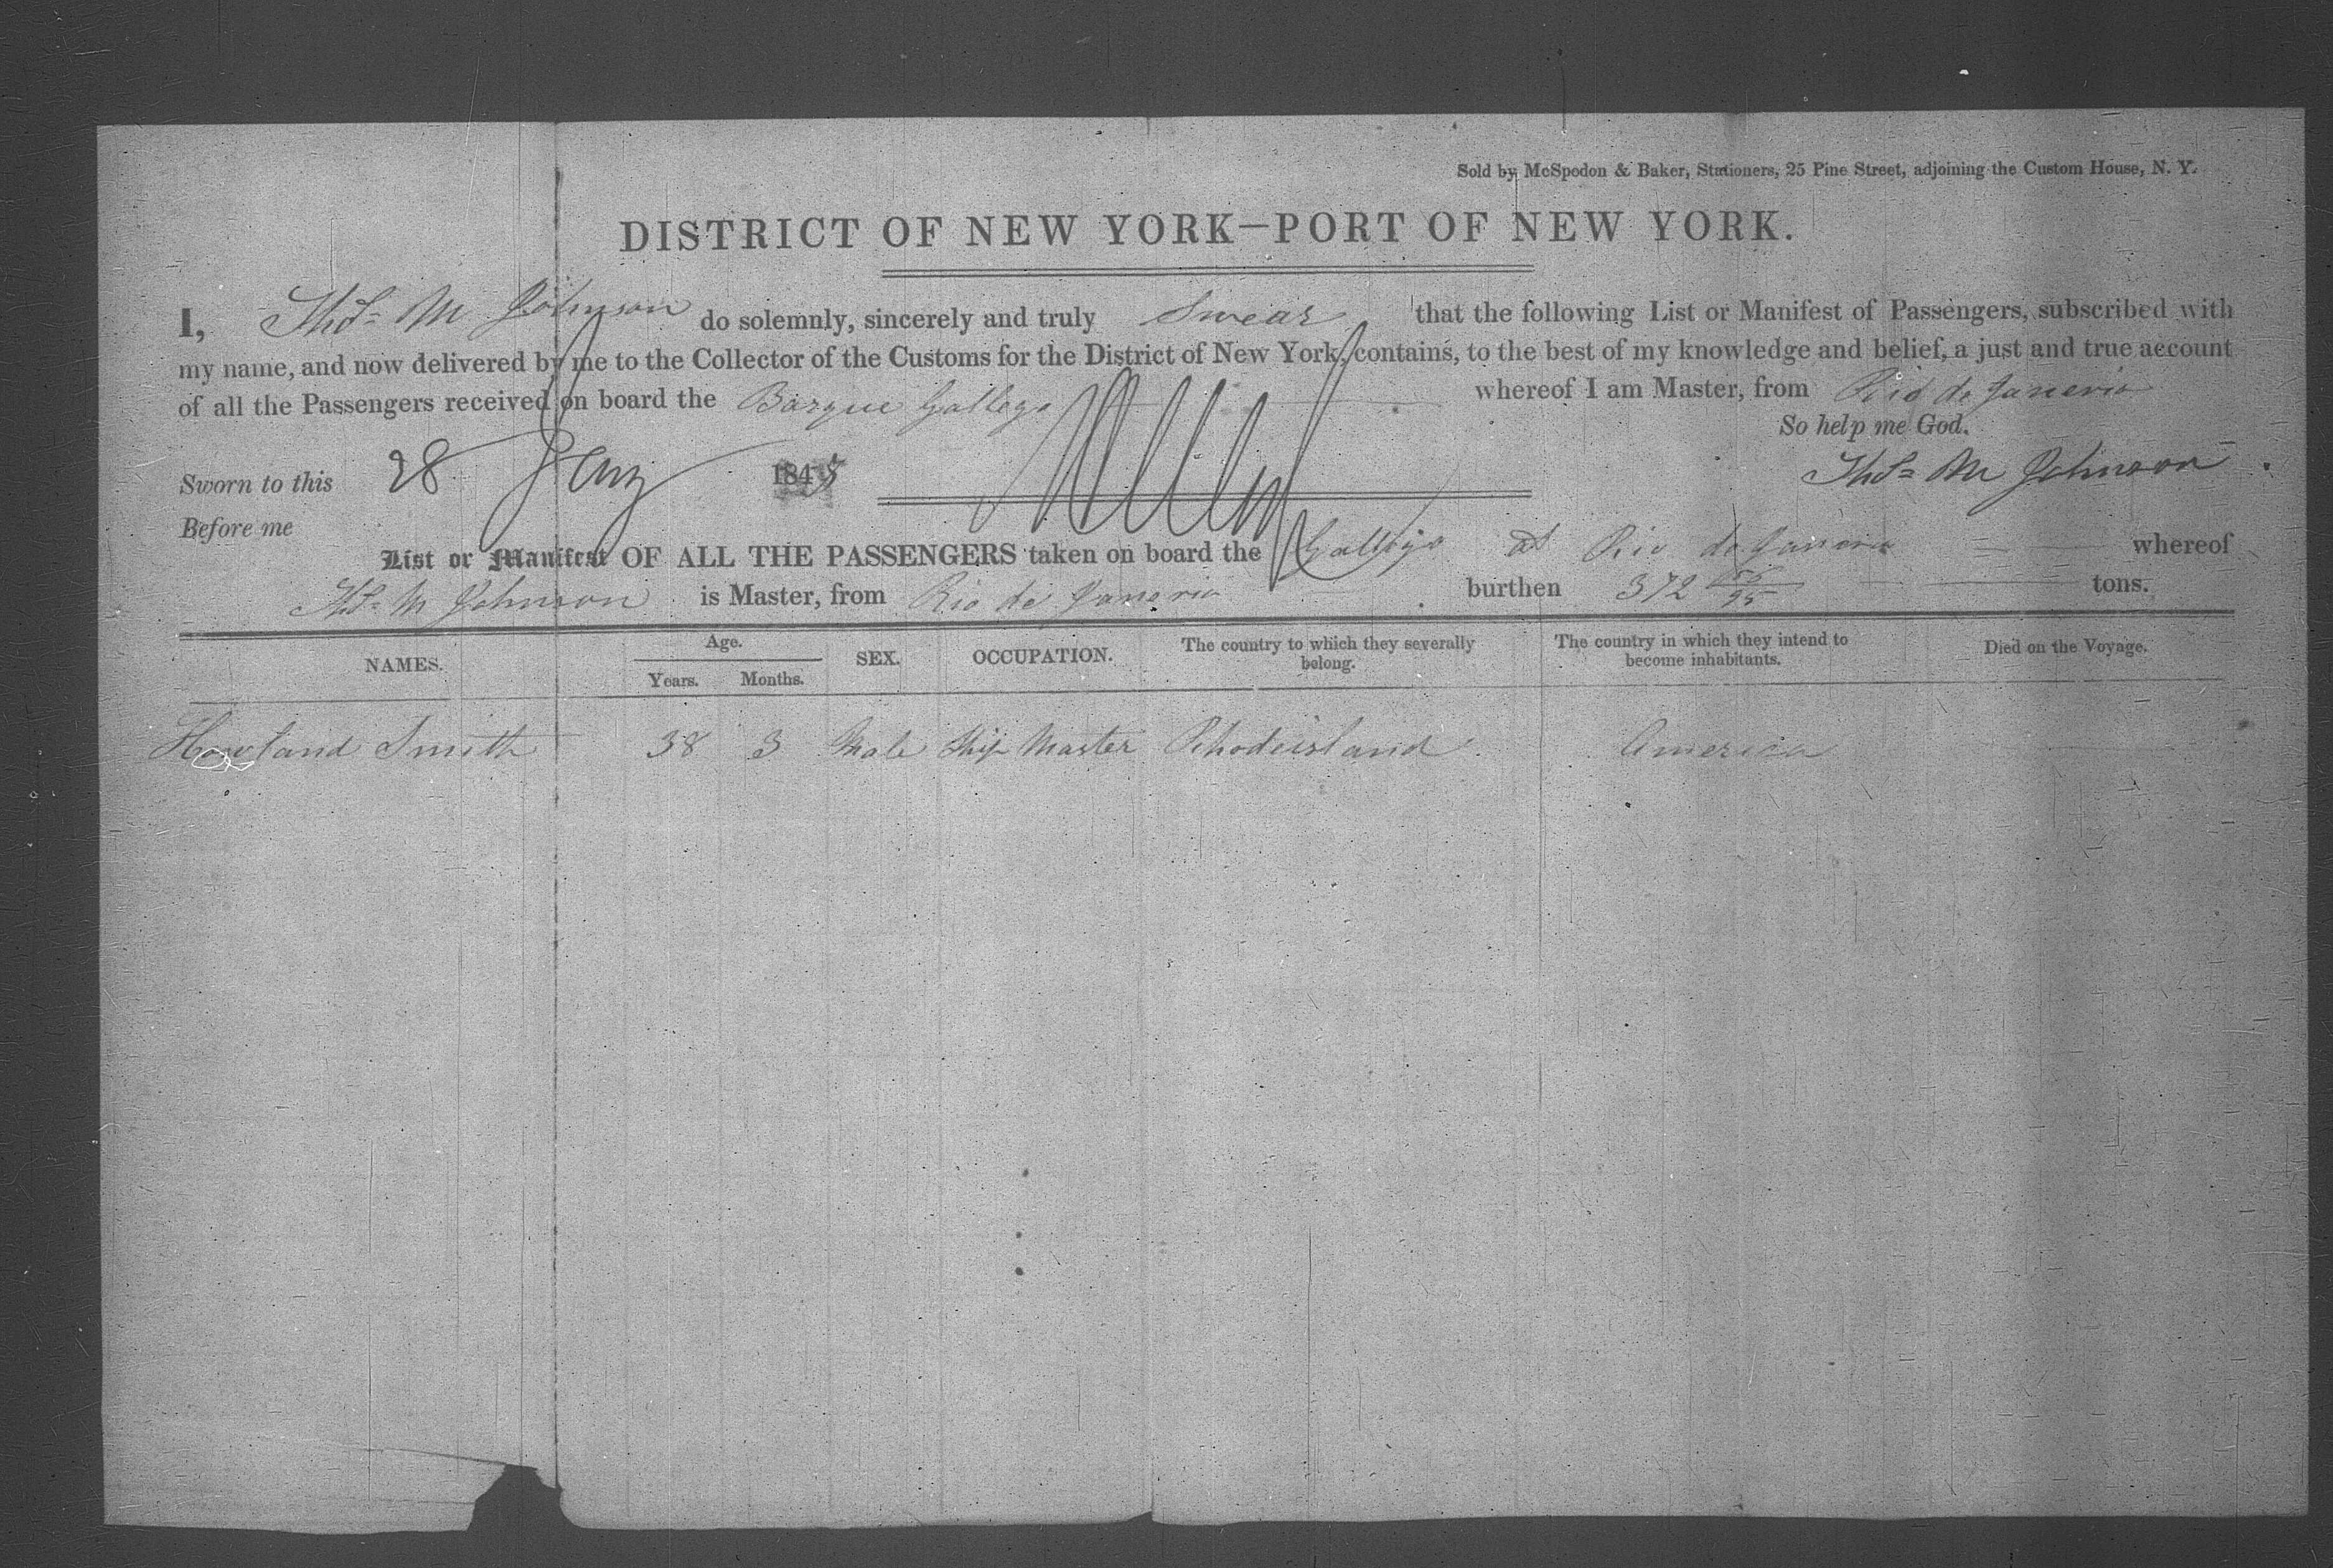 Sold by McSpedon & Baker, Stationers, 25 Pine Street, adjoining the Custom House, N. Y.
DISTRICT OF NEW YORK—PORT OF NEW YORK.
I, Thos. M Johnson do solemnly, sincerely and truly Swear that the following List or Manifest of Passengers, subscribed with
my name, and now delivered by me to the Collector of the Customs for the District of New York, contains, to the best of my knowledge and belief, a just and true account
of all the Passengers received on board the Barque Gallego whereof I am Master, from Rio de Janerio
So help me God.
Sworn to this 28 Jany 1845
Thos. M Johnson
Before me
List or Manifest OF ALL THE PASSENGERS taken on board the Gallego at Rio de Janerio whereof
Thos. M Johnson is Master, from Rio de Janerio burthen 372 tons.
NAMES. Age. Years. Months. SEX. OCCUPATION. The country to which they severally belong. The country in which they intend to become inhabitants. Died on the Voyage.
Howland Smith 38 3 Male Ship Master Rhodeisland America